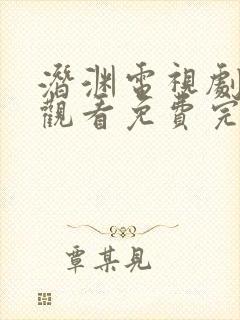 潛淵電視劇
觀看免費完
覃某見